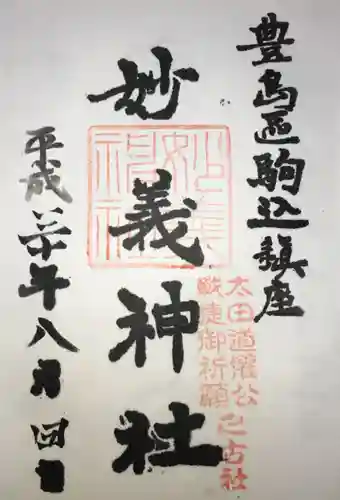 豊島區駒込鎮座
妙義神社
太田道灌公
戦捷御祈願
之古社
平成年八月四日